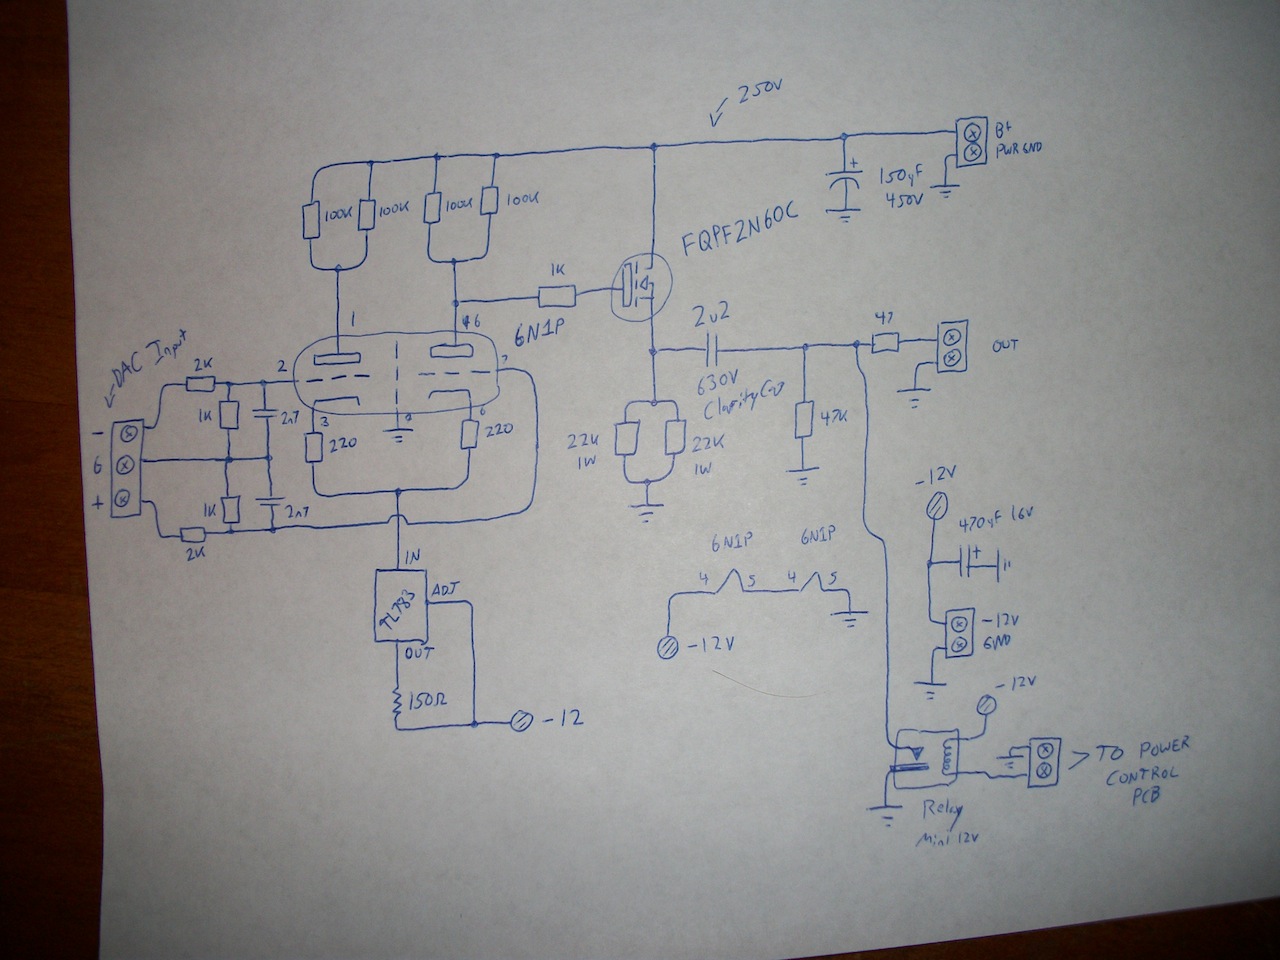 250V
B+
PWR GND
150µF
450V
100K
100K
100K
100K
FQPF2N60C
1K
1
6
6N1P
2u2
630V
47
OUT
DAC Input
2K
2
7
1K
2n7
3
9
220
220
22K
1W
22K
1W
47K
-
G
+
1K
2n7
2K
-12V
470µF 16V
6N1P
6N1P
4
5
4
5
-12V
-12V
GND
IN
TL783
ADJ
OUT
150Ω
-12
-12V
TO POWER
CONTROL
PCB
Relay
Mini 12V